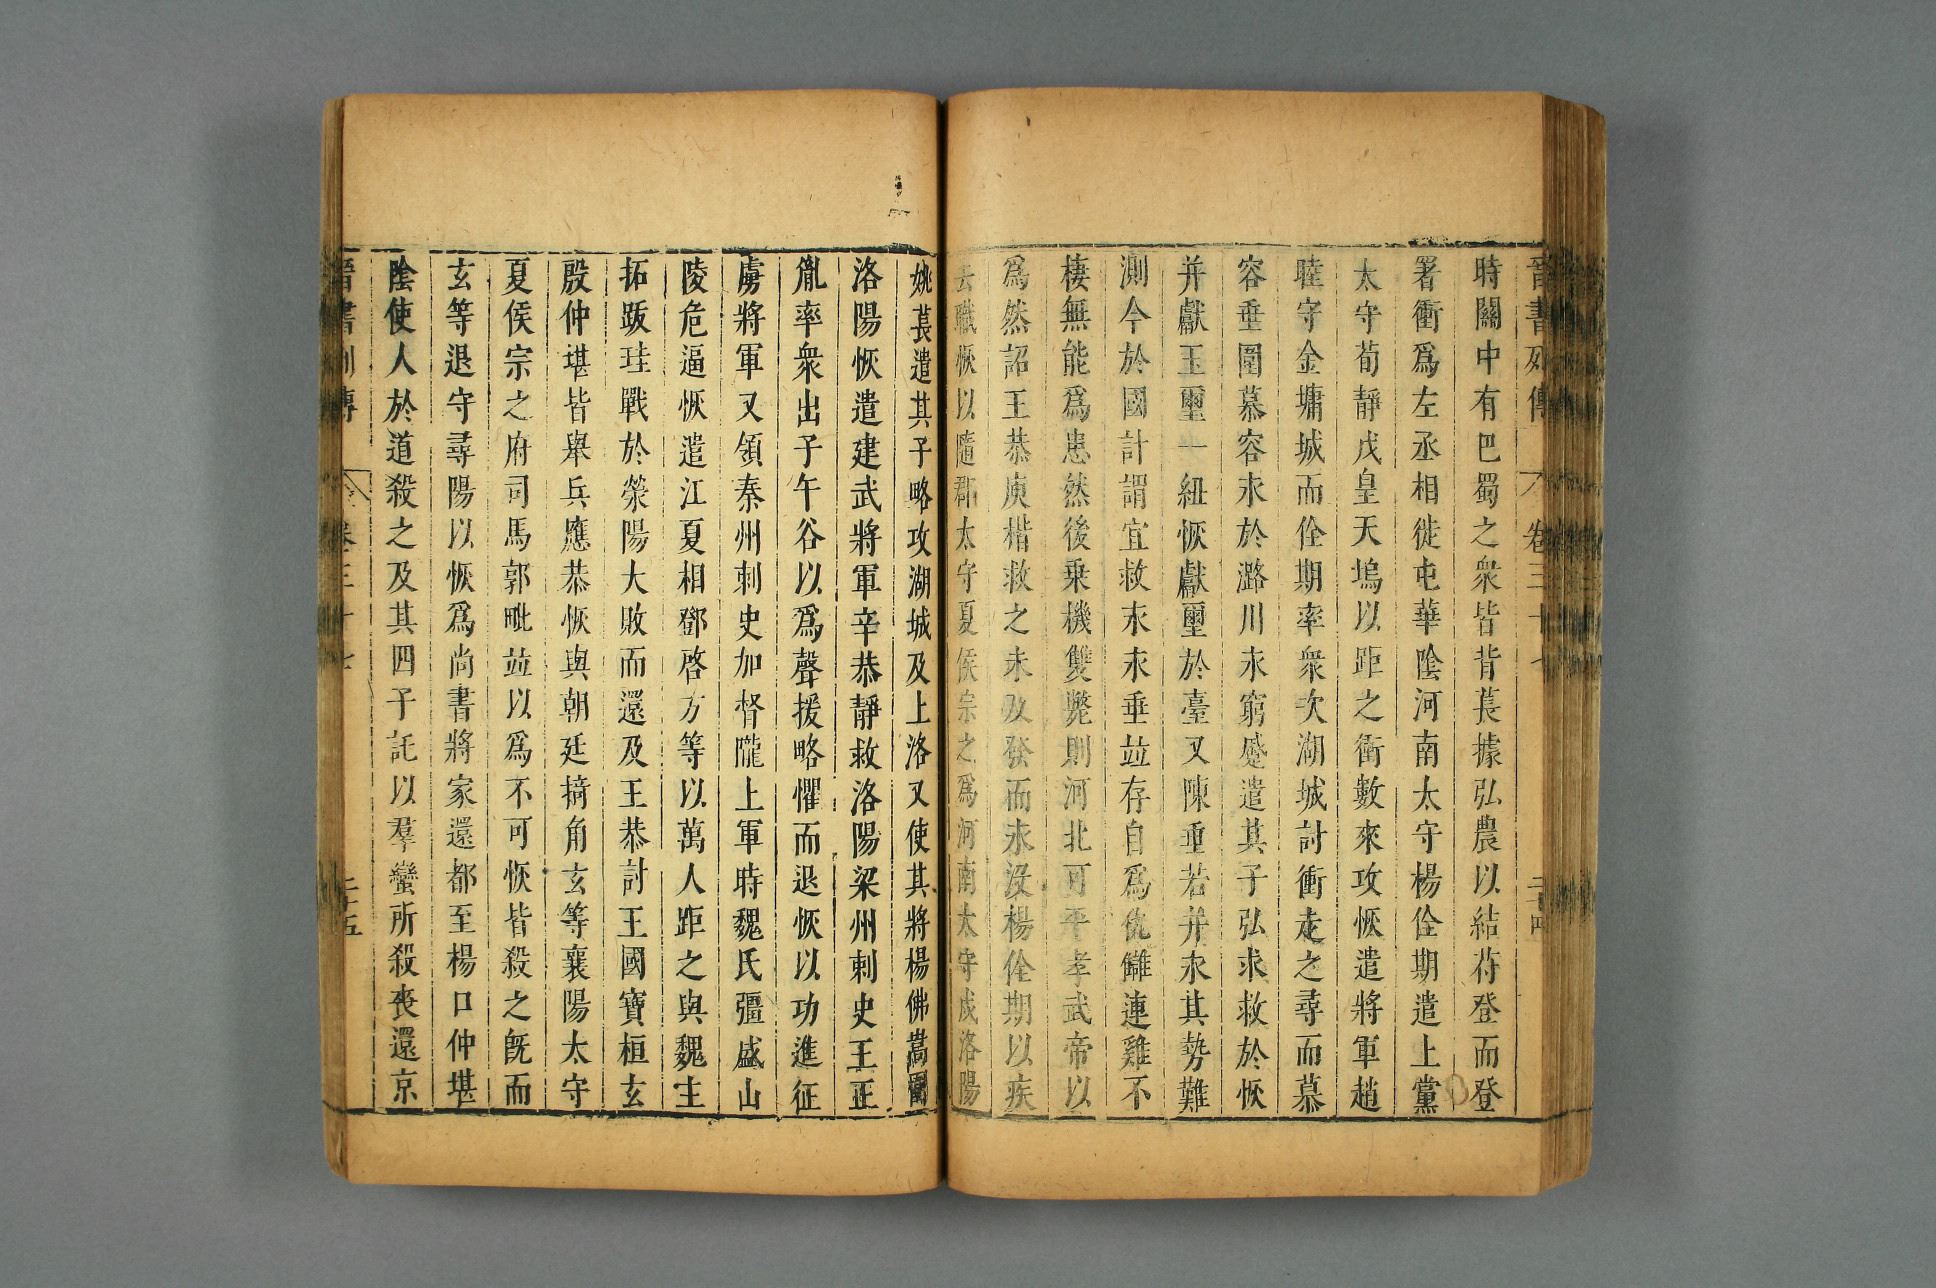 晉書列傳 卷三十七 二十四
時關中有巴蜀之衆皆背萇據弘農以結苻登而登
署衝爲左丞相徙屯華陰河南太守楊佺期遣上黨
太守荀靜戍皇天塢以距之衝數來攻恢遣將軍趙
睦守金墉城而佺期率衆次湖城討衝走之尋而慕
容垂圍慕容永於潞川永窮蹙遣其子弘求救於恢
并獻玉璽一紐恢獻璽於臺又陳垂若并永其勢難
測今於國計謂宜救永永垂並存自爲仇讎連雞不
棲無能爲患然後乗機雙斃則河北可平孝武帝以
爲然詔王恭庾楷救之未及發而永沒楊佺期以疾
去職恢以隨郡太守夏侯宗之爲河南太守戍洛陽
姚萇遣其子略攻湖城及上洛又使其將楊佛嵩圍
洛陽恢遣建武將軍辛恭靜救洛陽梁州刺史王正
胤率衆出子午谷以爲聲援略懼而退恢以功進征
虜將軍又領秦州刺史加督隴上軍時魏氏彊盛山
陵危逼恢遣江夏相鄧啓方等以萬人距之與魏主
拓跋珪戰於滎陽大敗而還及王恭討王國寶桓玄
殷仲堪皆舉兵應恭恢與朝廷掎角玄等襄陽太守
夏侯宗之府司馬郭毗並以爲不可恢皆殺之旣而
玄等退守尋陽以恢爲尚書將家還都至楊口仲堪
陰使人於道殺之及其四子託以羣蠻所殺喪還京
晉書列傳 卷三十七 二十五